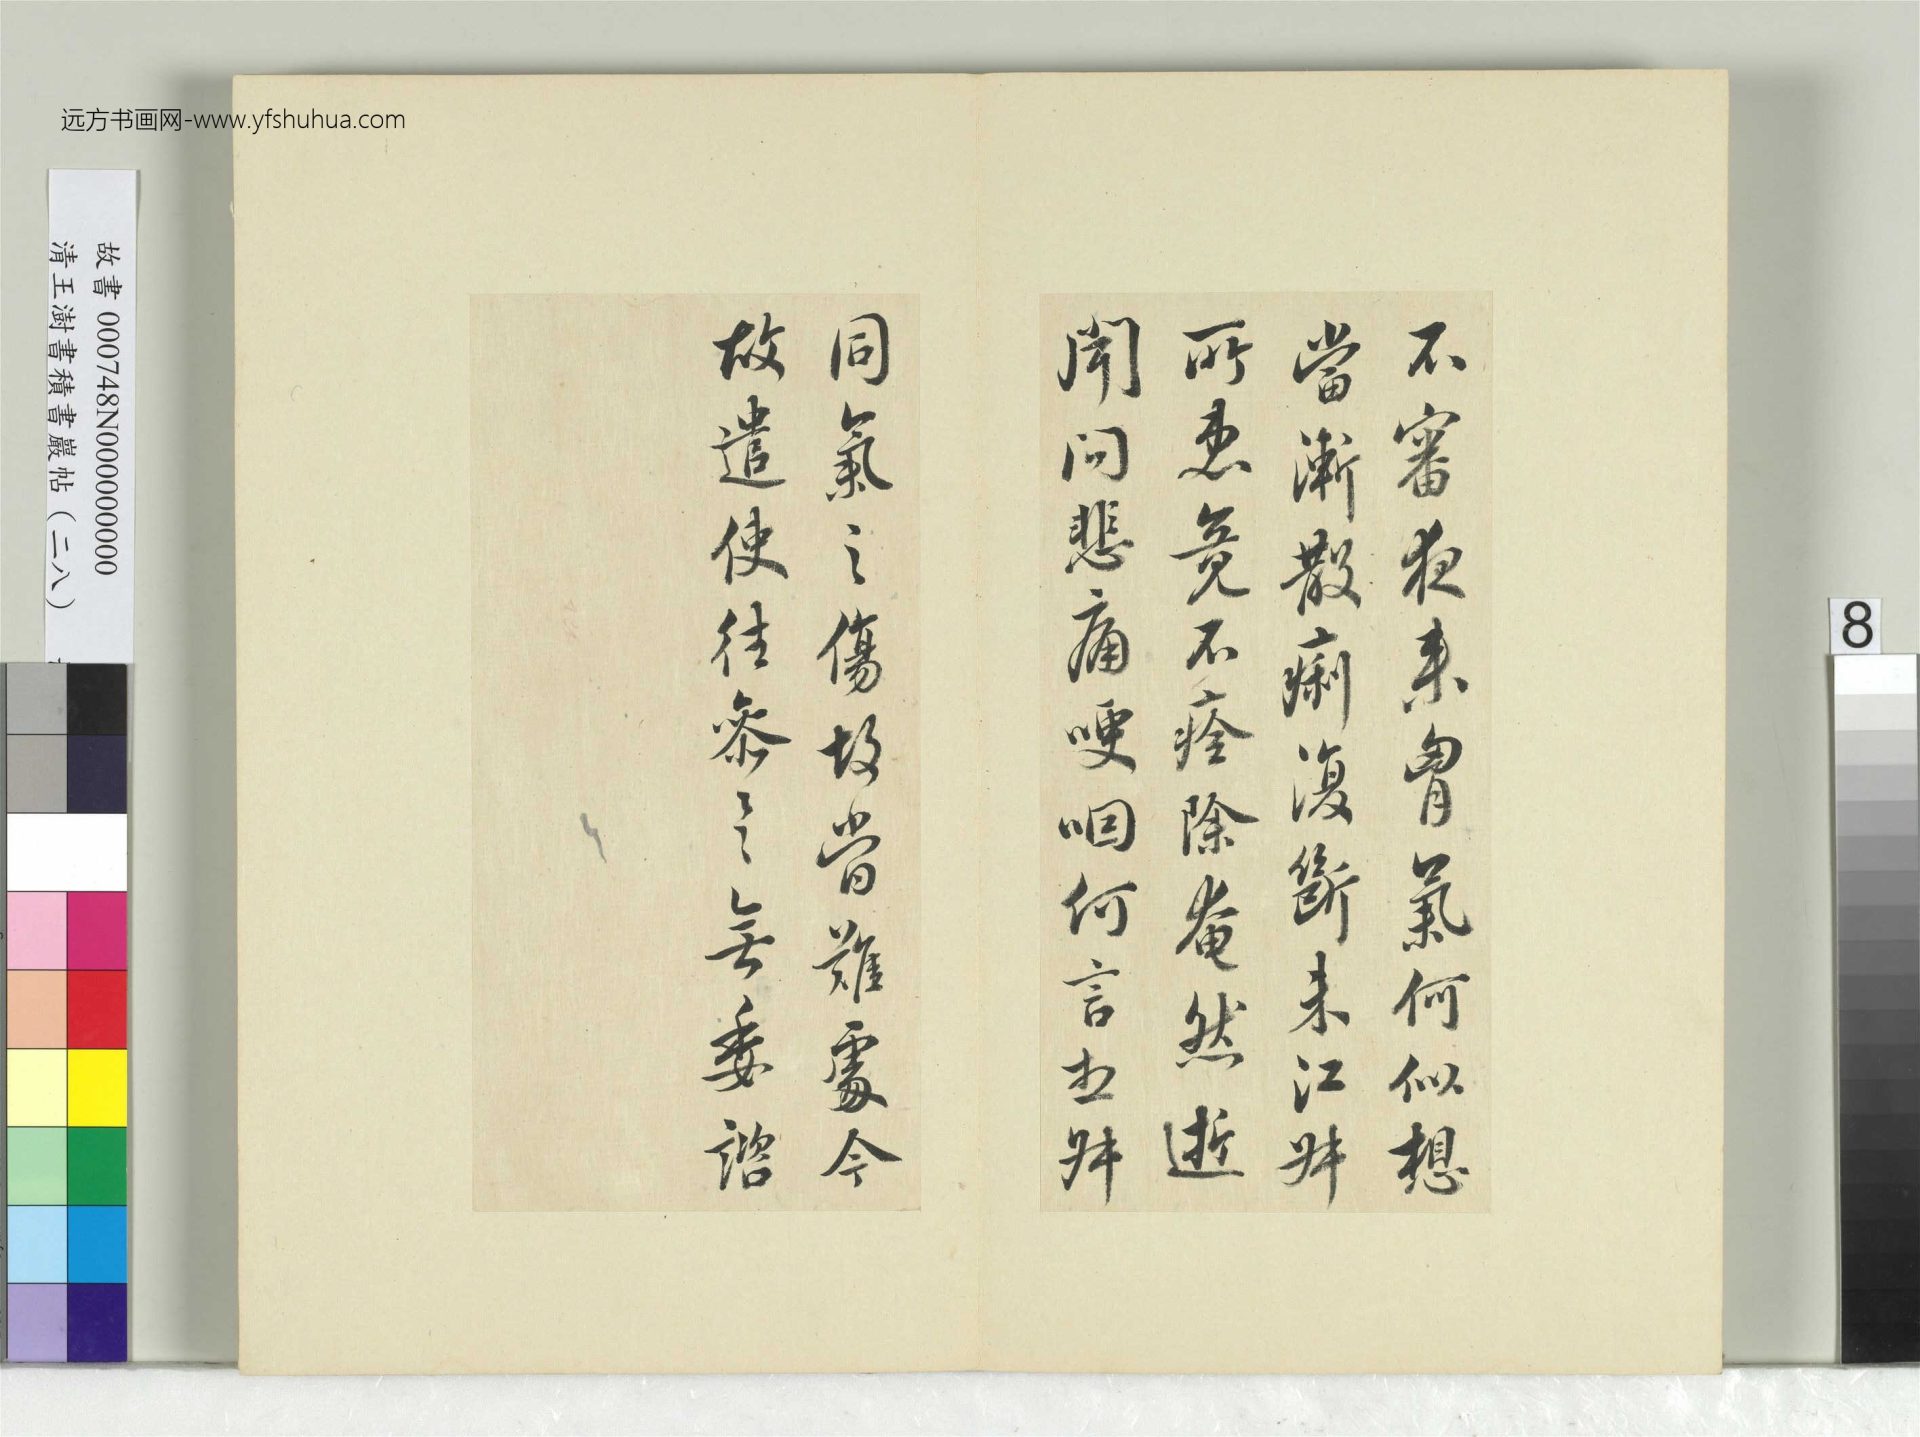 远方书画网-www.yfshuhua.com
故書 000748N000000000
清王澍書積書巖帖（二八）
8
不審夜来胷氣何似想
當漸散痢復斷未江叔
所患竟不痊除奄然逝
聞問悲痛哽咽何言叔
同氣之傷故當難處今
故遣使往參之無委諮